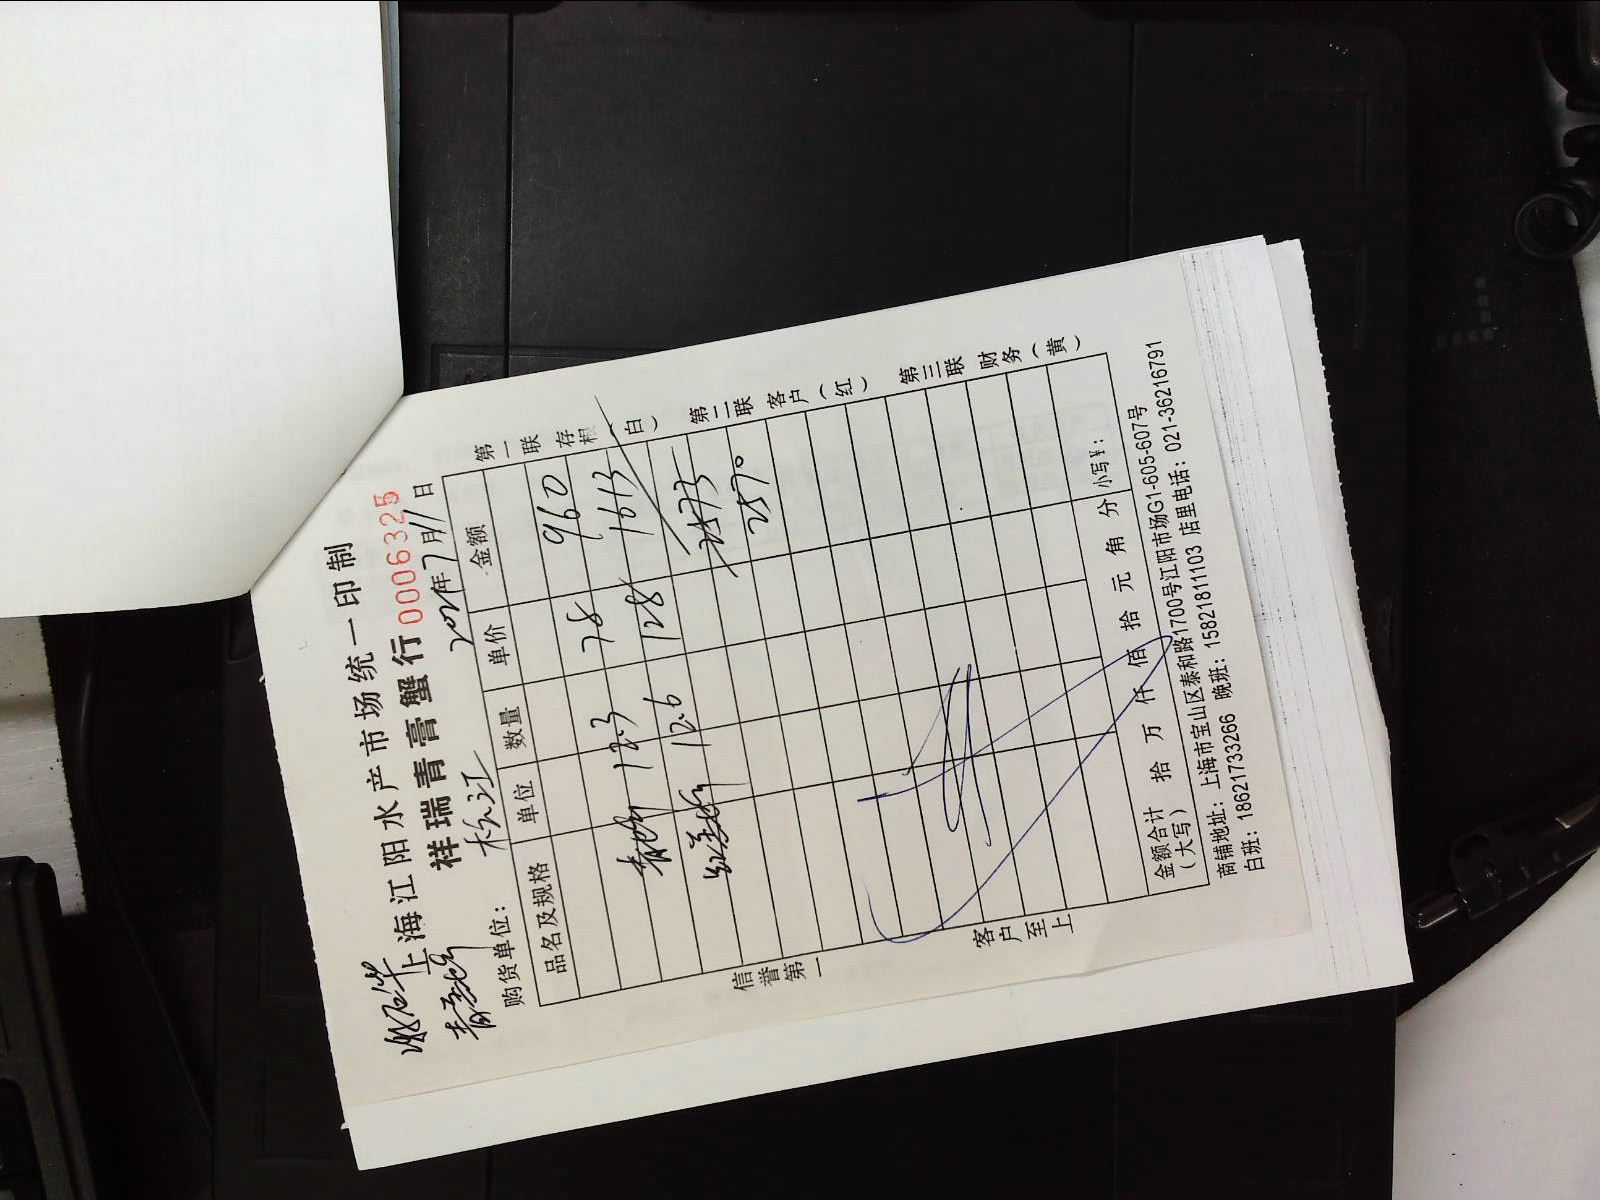 上海江阳水产市场统一印制
祥瑞青膏蟹行 0006325
购货单位： 松江 2021年7月11日
品名及规格 单位 数量 单价 金额
青蟹 12.3 78 960
红膏蟹 12.6 128 1613
2573
2570
金额合计（大写） 拾 万 仟 佰 拾 元 角 分 小写¥：
商铺地址：上海市宝山区泰和路1700号江阳市场G1-605-607号
白班：18621733266 晚班：15821811103 店里电话：021-36216791
信誉第一 客户至上
第一联 存根（白） 第二联 客户（红） 第三联 财务（黄）